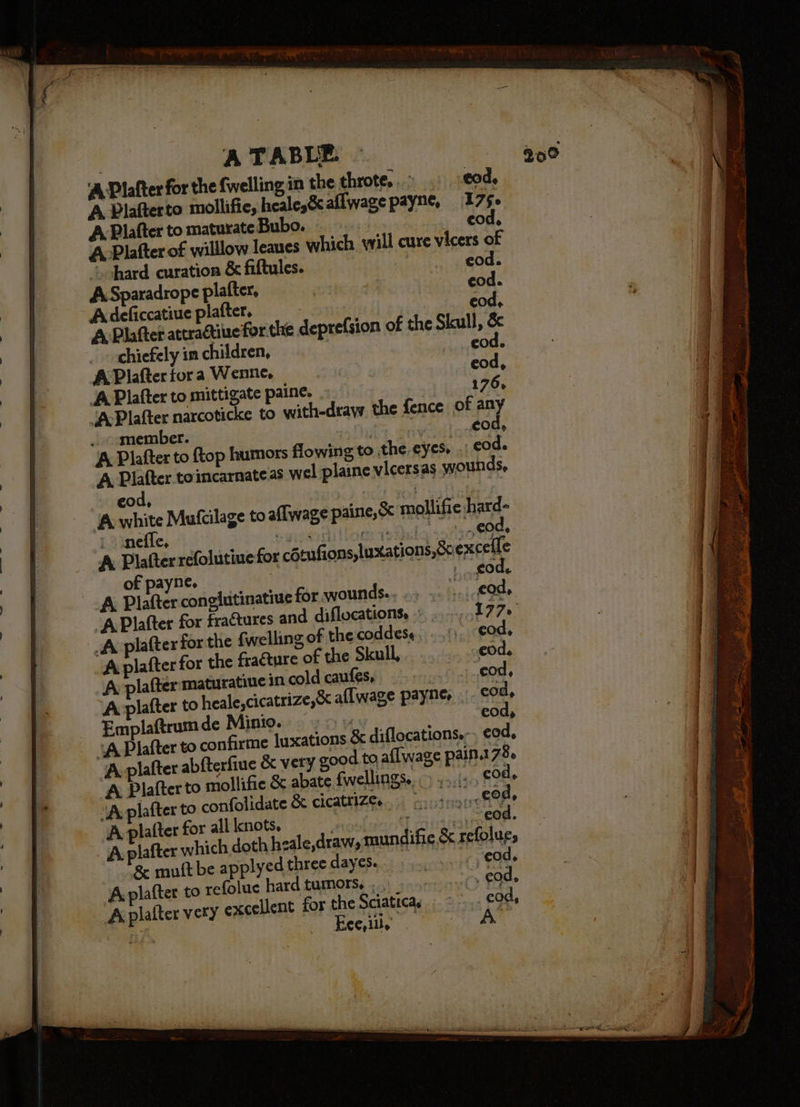 A TABLE. 200
A Plaſter for the ſwelling in the throte. eod.
A Plaſter to mollifie, heale, & aſſwage payne, 175.
A Plaſter to maturate Bubo. eod,
A Plaſter of willlow leaues which will cure vlcers of
hard curation & fiſtules. eod.
A Sparadrope plaſter, eod.
A deſiccatiue plaſter, eod,
A Plaſter attractiue for the depreſsion of the Skull, &
chiefely in children, eod.
A Plaſter for a Wenne, eod,
A Plaſter to mittigate paine. 176,
A Plaſter narcoticke to with-draw the fence of any
member. eod,
A Plaſter to ſtop humors flowing to the eyes, eod.
A Plaſter to incarnate as wel plaine vlcers as wounds,
eod,
A white Muſcilage to aſſwage paine, & mollifie hard-
neſſe, eod,
A Plaſter reſolutiue for cõtuſions, luxations, & exceſſe
of payne, eod.
A Plaſter conglutinatiue for wounds. eod,
A Plaſter for fractures and diſlocations, 177.
A plaſter for the ſwelling of the coddes, eod,
A plaſter for the fracture of the Skull, eod.
A plaſter maturatiue in cold cauſes, eod,
A plaſter to heale, cicatrize, & aſſwage payne, eod,
Emplaſtrum de Minio. eod,
A Plaſter to confirme luxations & diſlocations, eod,
A plaſter abſterſiue & very good to aſſwage pain. 178.
A Plaſter to mollifie & abate ſwellings. eod,
A plaſter to conſolidate & cicatrize. eod,
A plaſter for all knots, eod.
A plaſter which doth heale, draw, mundifie & reſolue,
& muſt be applyed three dayes. eod,
A plaſter to reſolue hard tumors, eod.
A plaſter very excellent for the Sciatica, eod,
Eee, iii, A